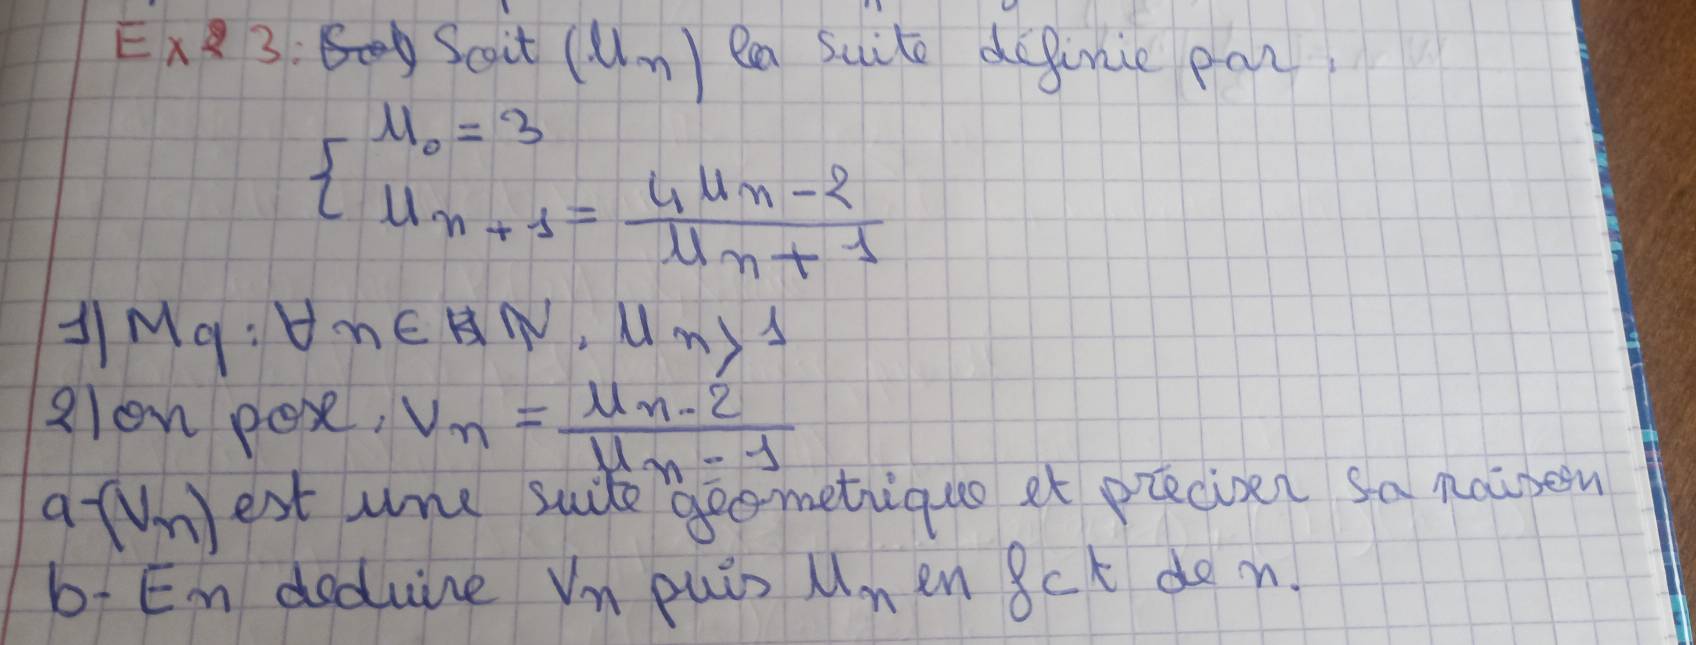 Ex 3: Soit (Un) la suite définie par :
{ U0 = 3
Un+1 = (4Un - 2) / (Un + 1)
1) Mq : ∀n ∈ ℕ, Un > 1
2) on pose : Vn = (Un - 2) / (Un - 1)
a - (Vn) est une suite géometrique et préciser sa raison
b - En deduire Vn puis Un en fct de n.